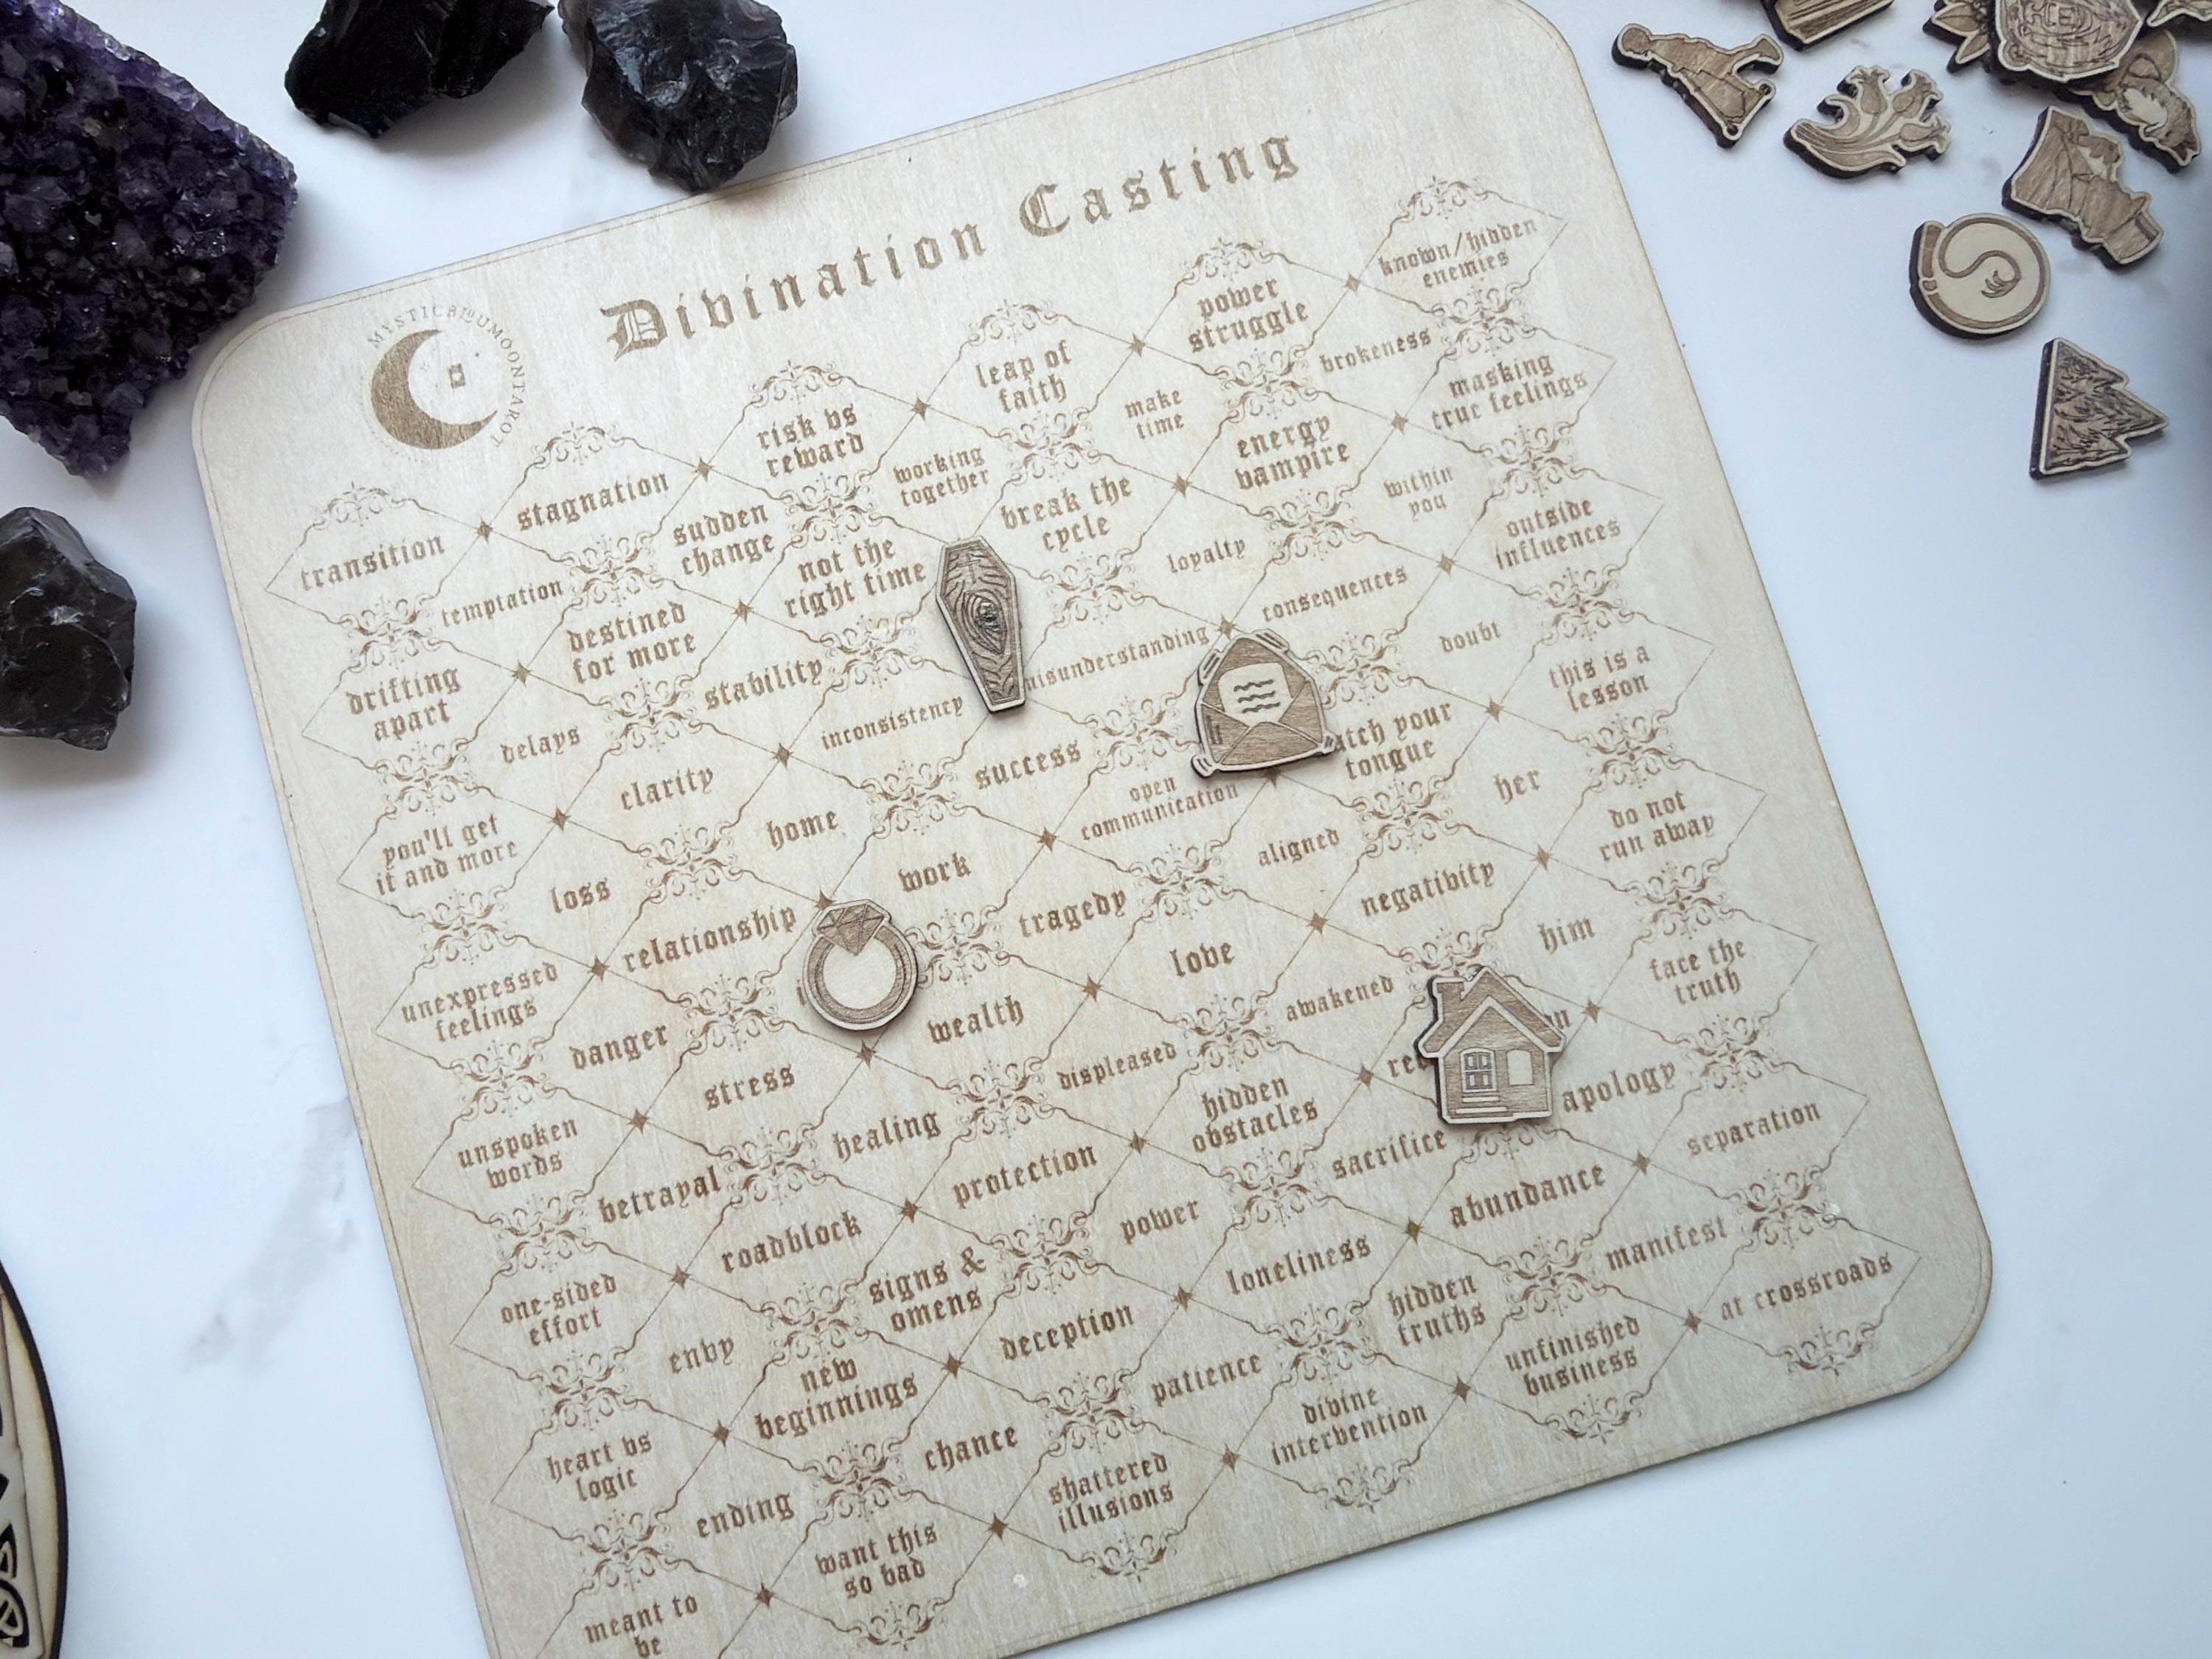 Divination Casting
known/hidden
enemies
power
struggle
leap of
faith
risk vs
reward
stagnation
transition
brokeness
make
time
working
together
sudden
change
temptation
masking
true feelings
energy
vampire
break the
cycle
not the
right time
destined
for more
drifting
apart
within
you
loyalty
stability
delays
outside
influences
consequences
misunderstanding
inconsistency
clarity
you'll get
it and more
doubt
success
home
loss
this is a
lesson
tongue
open
communication
work
relationship
unexpressed
feelings
her
aligned
tragedy
danger
do not
run away
negativity
love
wealth
stress
unspoken
words
him
awakened
displeased
healing
betrayal
face the
truth
hidden
obstacles
protection
roadblock
one-sided
effort
apology
sacrifice
power
signs &
omens
envy
separation
abundance
loneliness
deception
new
beginnings
heart vs
logic
manifest
hidden
truths
patience
chance
ending
at crossroads
unfinished
business
divine
intervention
shattered
illusions
want this
so bad
meant to
be